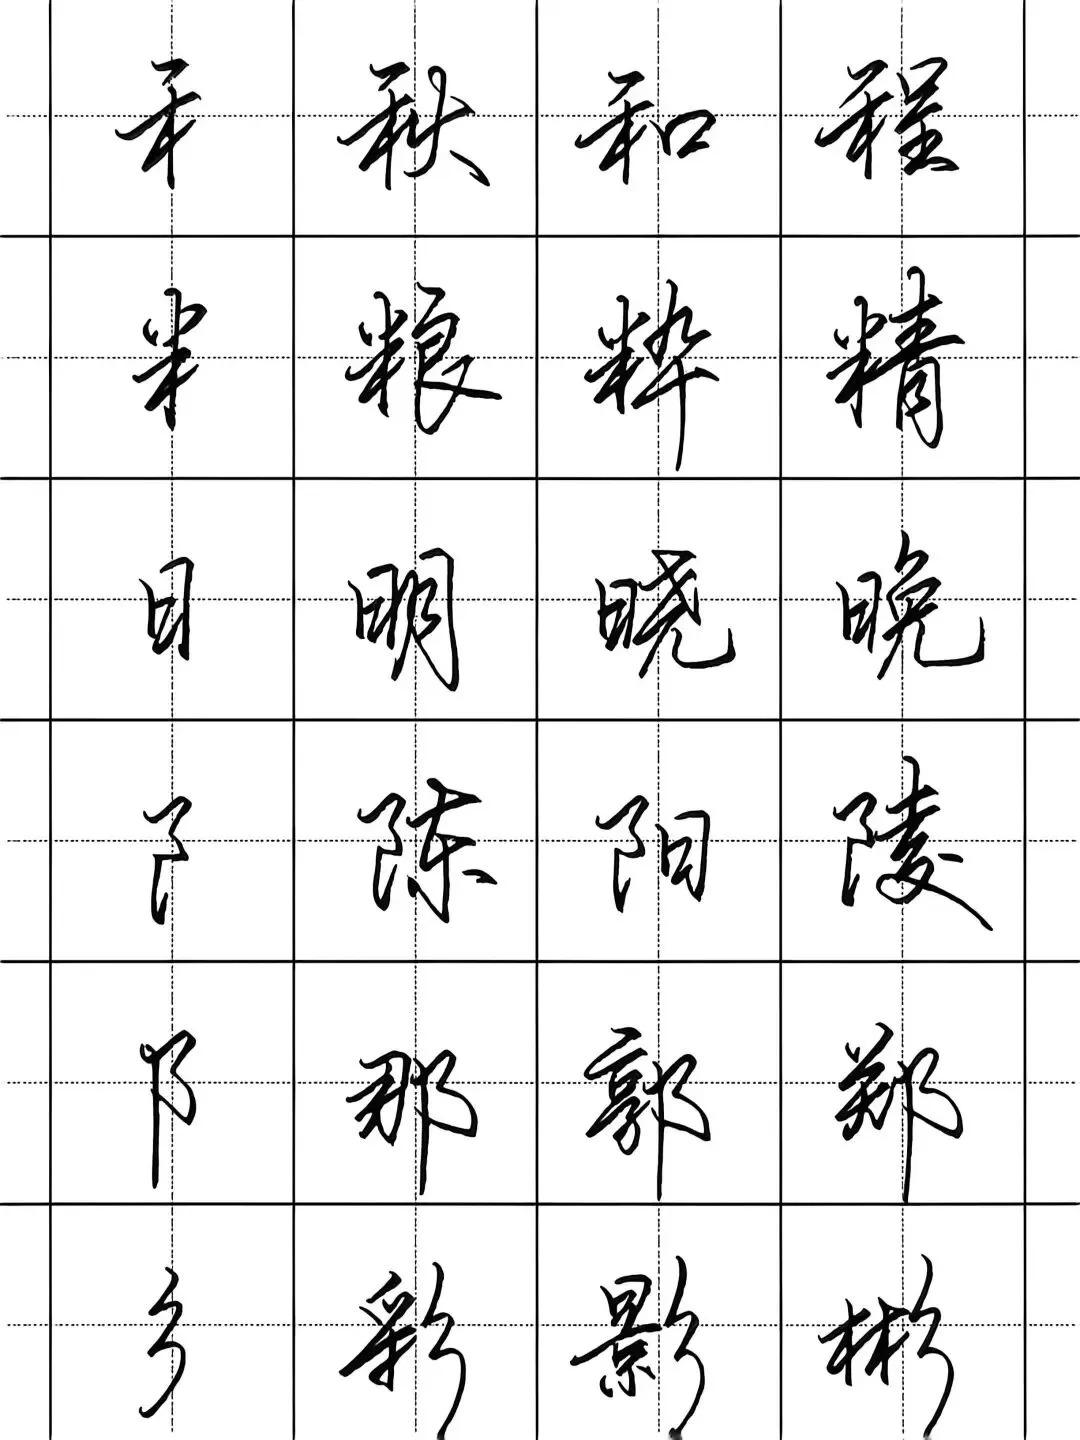 禾 秋 和 程
米 粮 粹 精
日 明 晓 晚
阝 陈 阳 陵
阝 那 郭 郑
彡 彩 影 彬